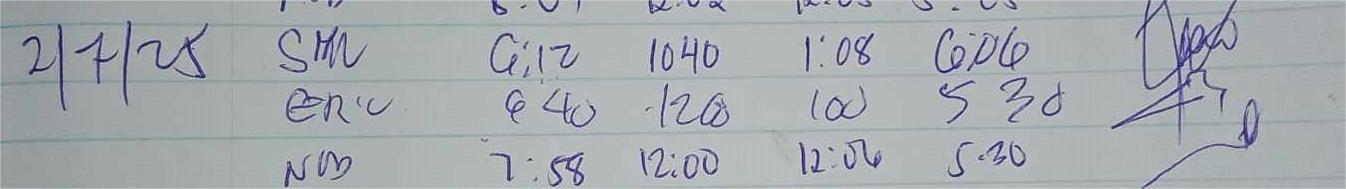 2/7/25 SML 6:12 1040 1:08 6:06
ERIC 6 40 120 100 5 30
NOD 7:58 12:00 12:06 5:30